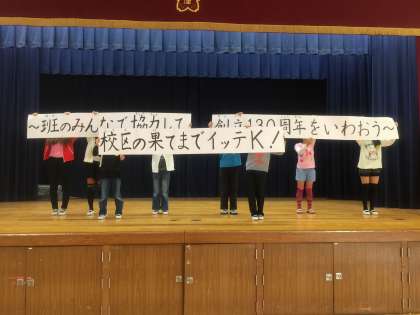 ～班のみんなで協力して 創立130周年をいわおう～
校区の果てまでイッテK!